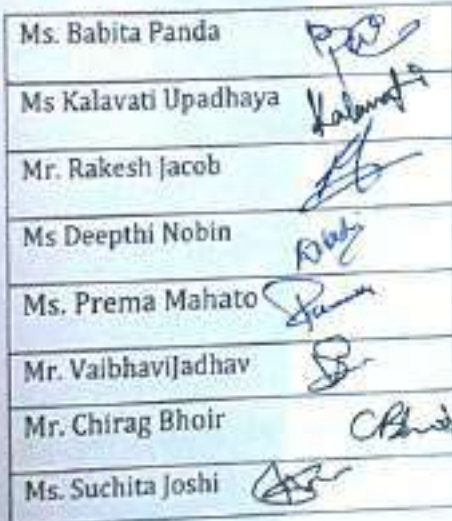 Ms. Babita Panda
Ms Kalavati Upadhaya Kalavati
Mr. Rakesh Jacob
Ms Deepthi Nobin
Ms. Prema Mahato
Mr. VaibhaviJadhav
Mr. Chirag Bhoir
Ms. Suchita Joshi